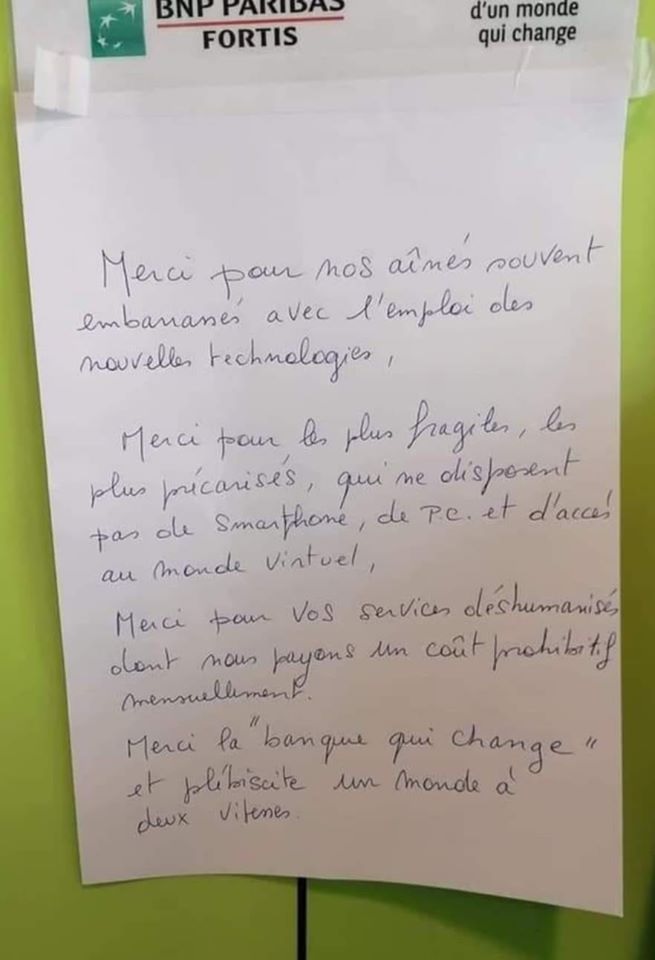 BNP PARIBAS
FORTIS
d'un monde
qui change
Merci pour nos aînés souvent
embarrassés avec l'emploi des
nouvelles technologies,
Merci pour les plus fragiles, les
plus précarisés, qui ne disposent
pas de Smartphone, de P.C. et d'accès
au monde virtuel,
Merci pour vos services déshumanisés
dont nous payons un coût prohibitif
mensuellement.
Merci la "banque qui change"
et plébiscite un monde à
deux vitesses.